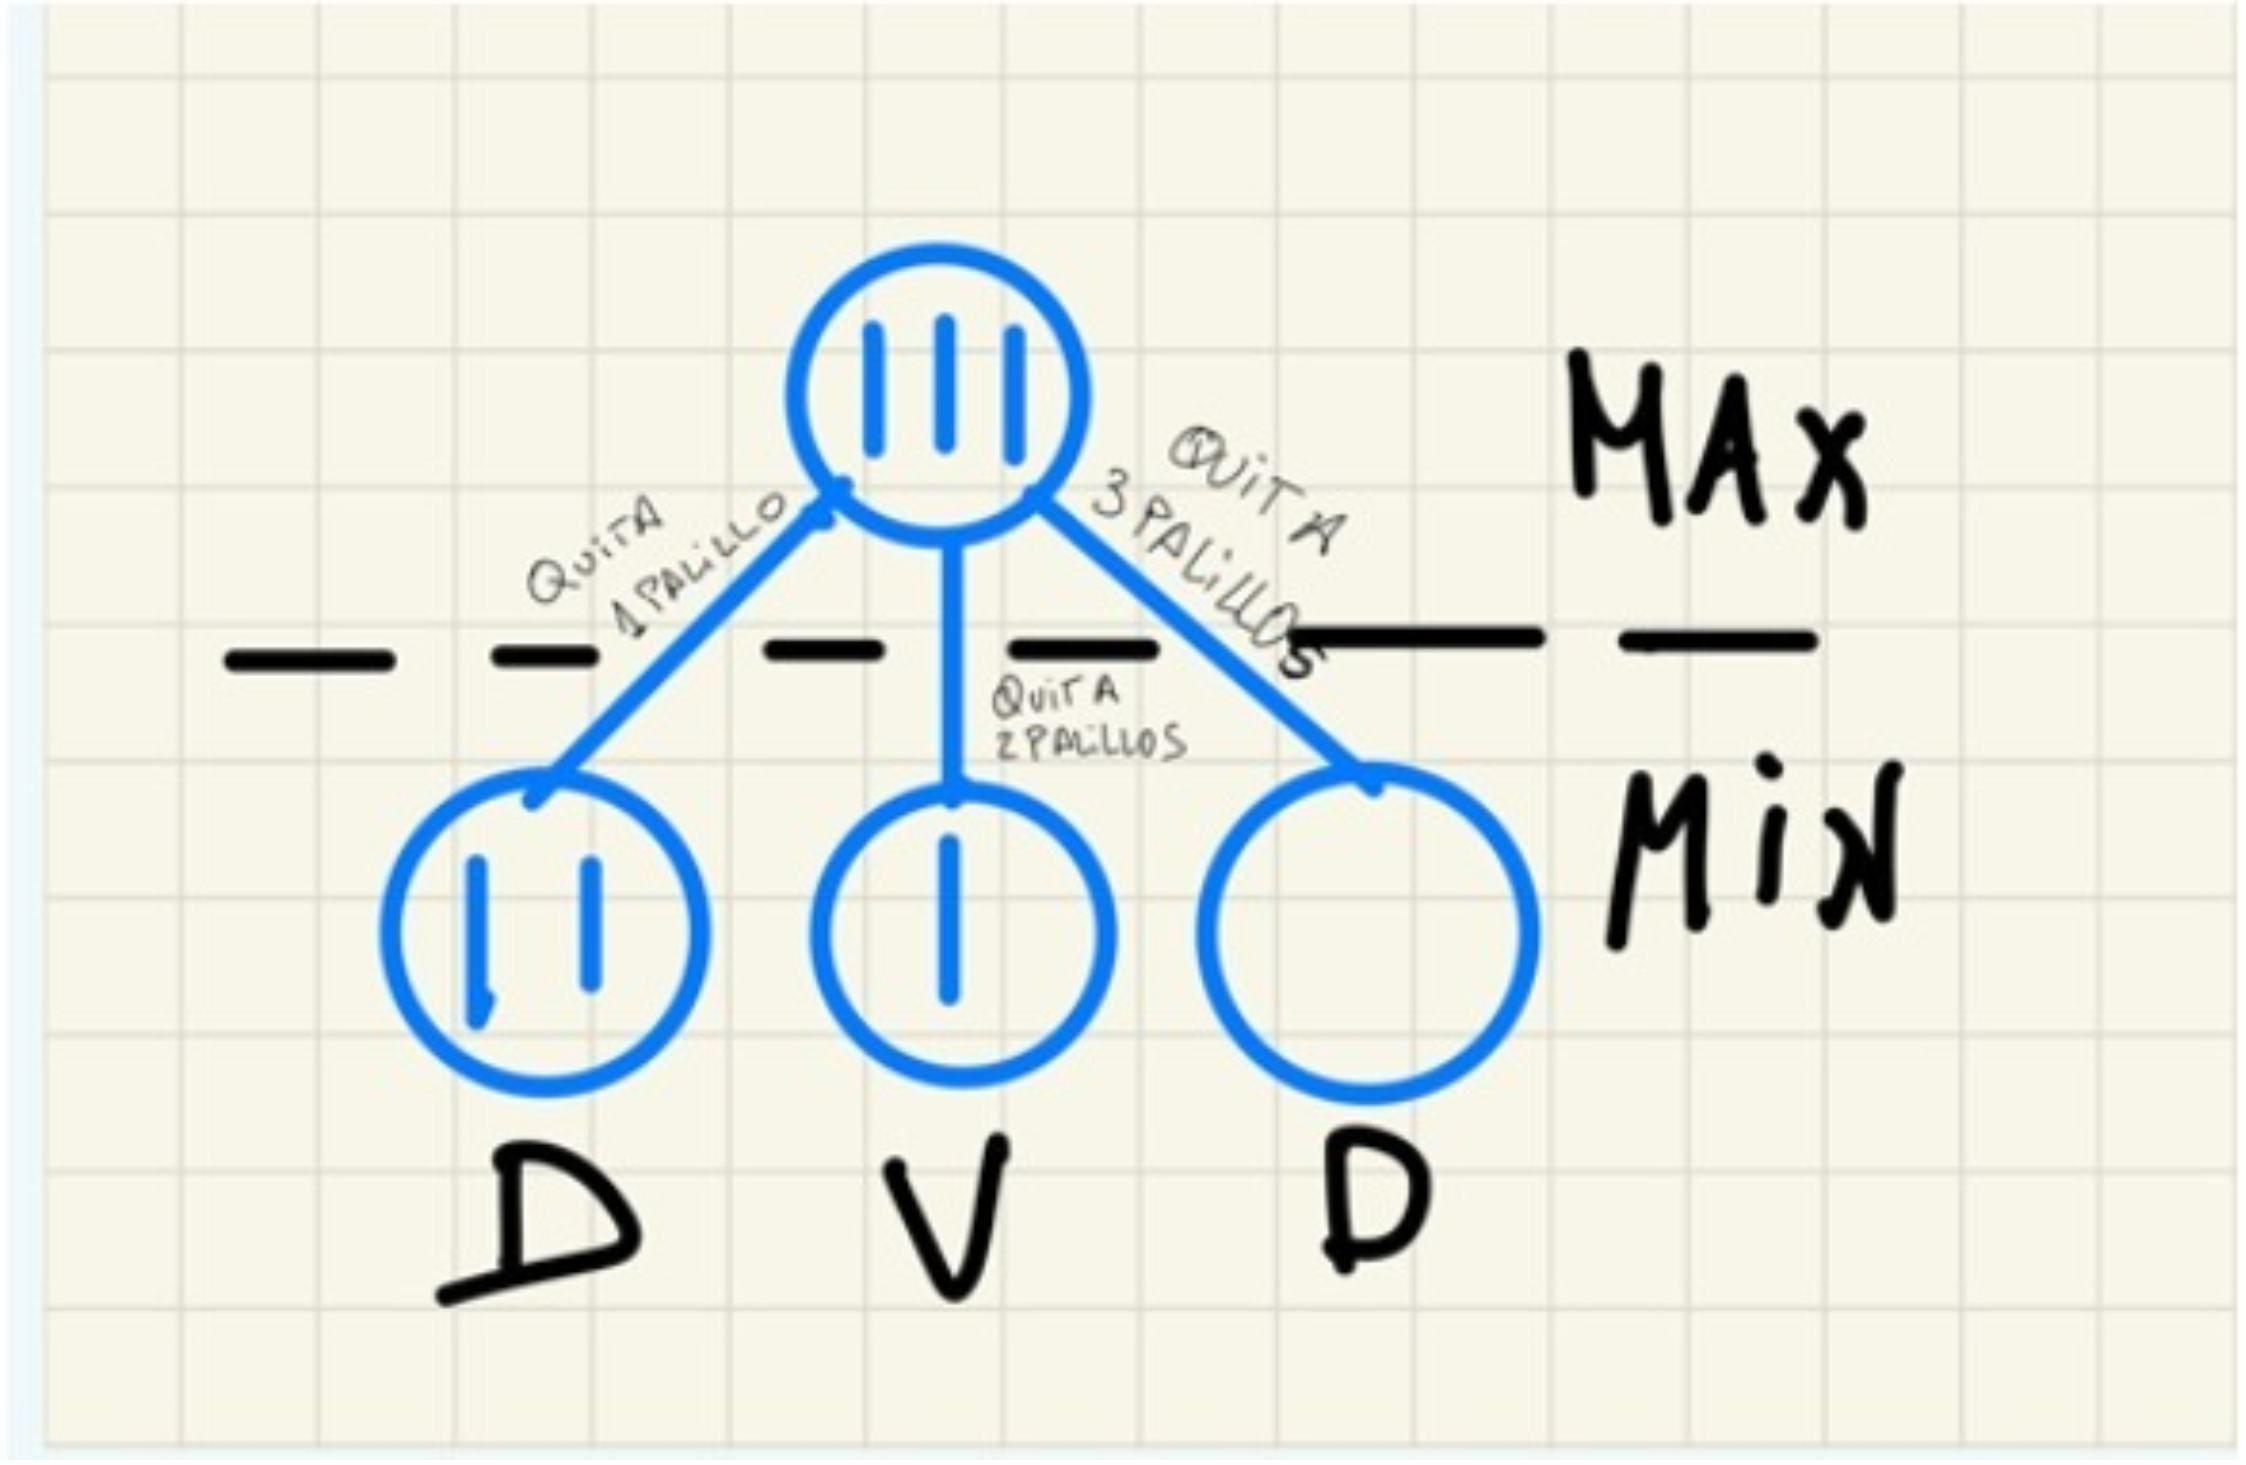 MAX
QUITA
1 PALILLO
QUITA
3 PALILLOS
QUITA
2 PALILLOS
MiN
D
V
D